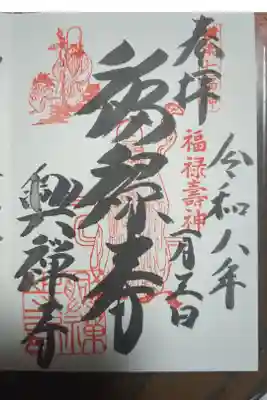 奉拝
令和八年
一月三日
福禄壽神
福禄寿
興禅寺